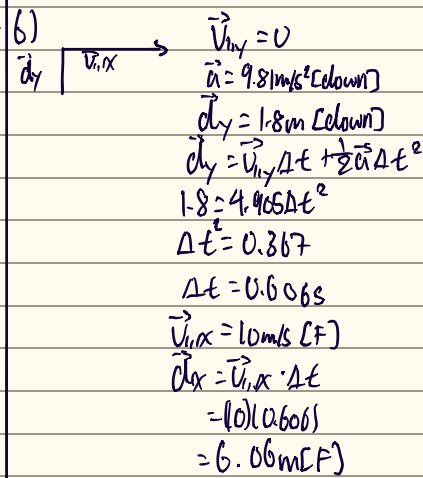 6)
d⃗y v⃗1,x
v⃗1,y = 0
a⃗ = 9.81m/s² [down]
d⃗y = 1.8m [down]
d⃗y = v⃗1,y Δt + ½a⃗Δt²
1.8 = 4.905Δt²
Δt² = 0.367
Δt = 0.606s
v⃗1,x = 10m/s [F]
d⃗x = v⃗1,x · Δt
= (10)(0.606)
= 6.06m[F]